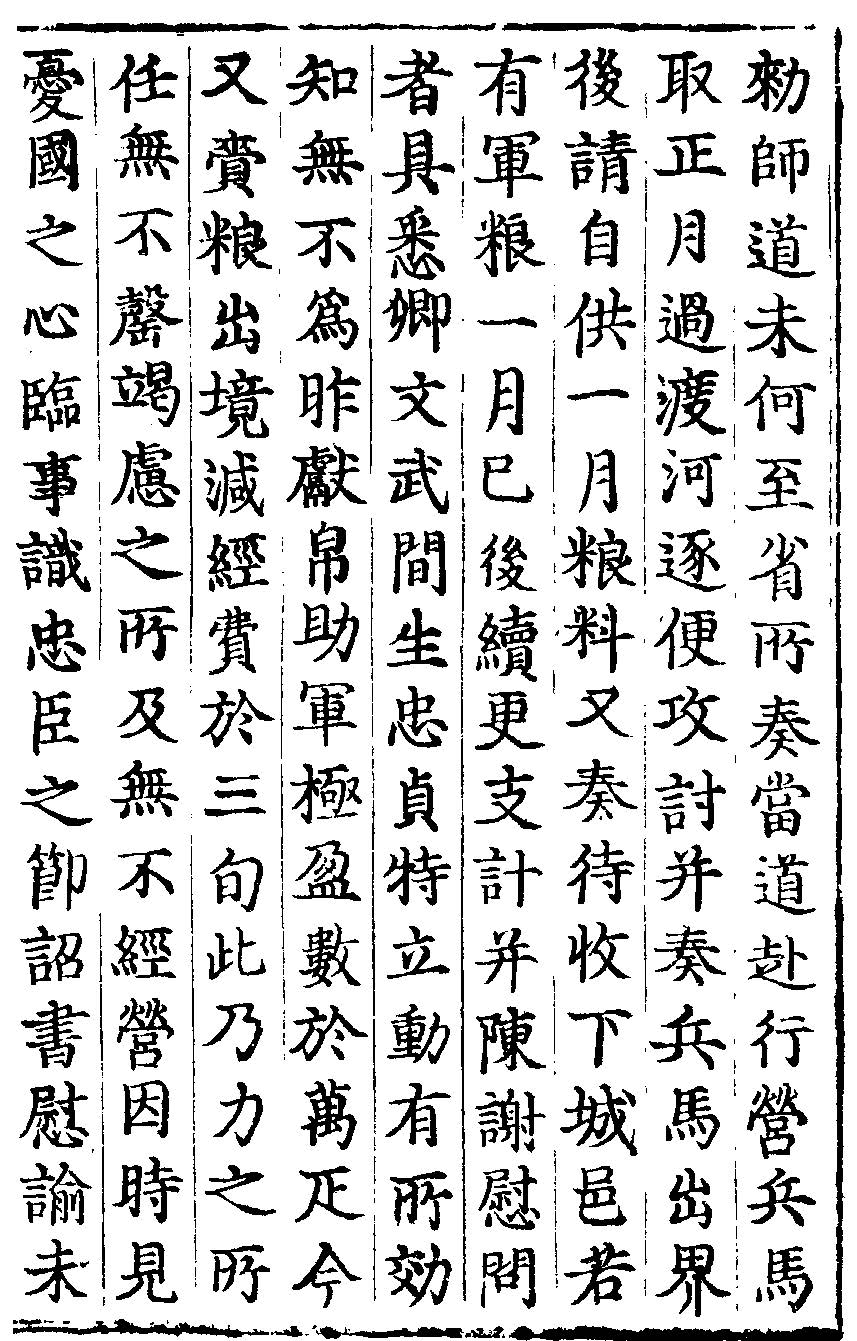 勑師道未何至省所奏當道赴行營兵馬
取正月過渡河逐便攻討并奏兵馬出界
後請自供一月粮料又奏待收下城邑若
有軍粮一月已後續更支計并陳謝慰問
者具悉卿文武間生忠貞特立動有所効
知無不為昨獻帛助軍極盈數於萬疋今
又賷粮出境減經費於三旬此乃力之所
任無不罄竭慮之所及無不經營因時見
憂國之心臨事識忠臣之節詔書慰諭未